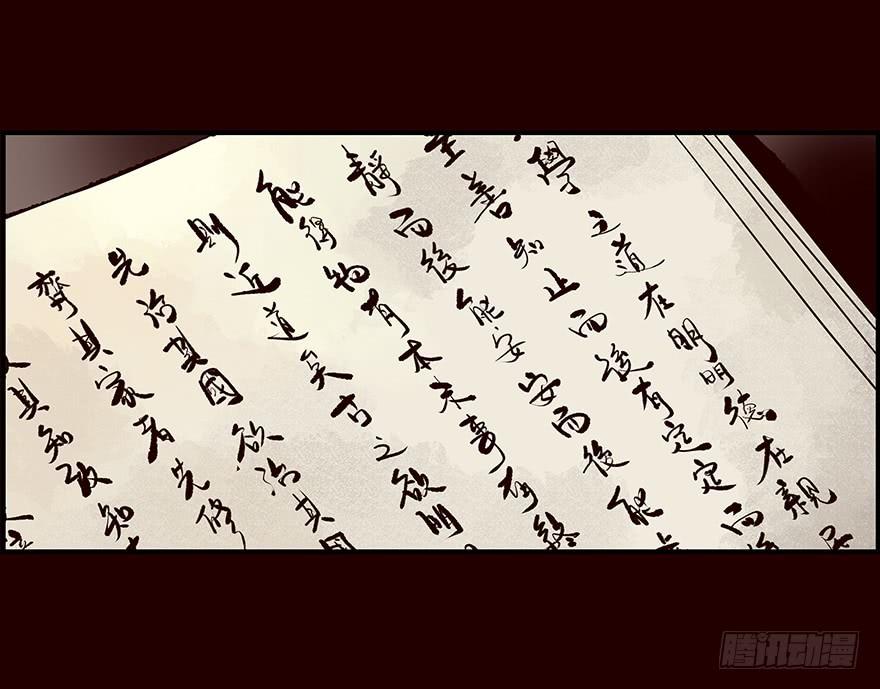 學之道在明明德在親民
善知止而後有定定而後
靜而後能安安而後能
能得物有本末事有終
則近道矣古之欲明
先治其國欲治其國
齊其家者先修
其知致知
腾讯动漫